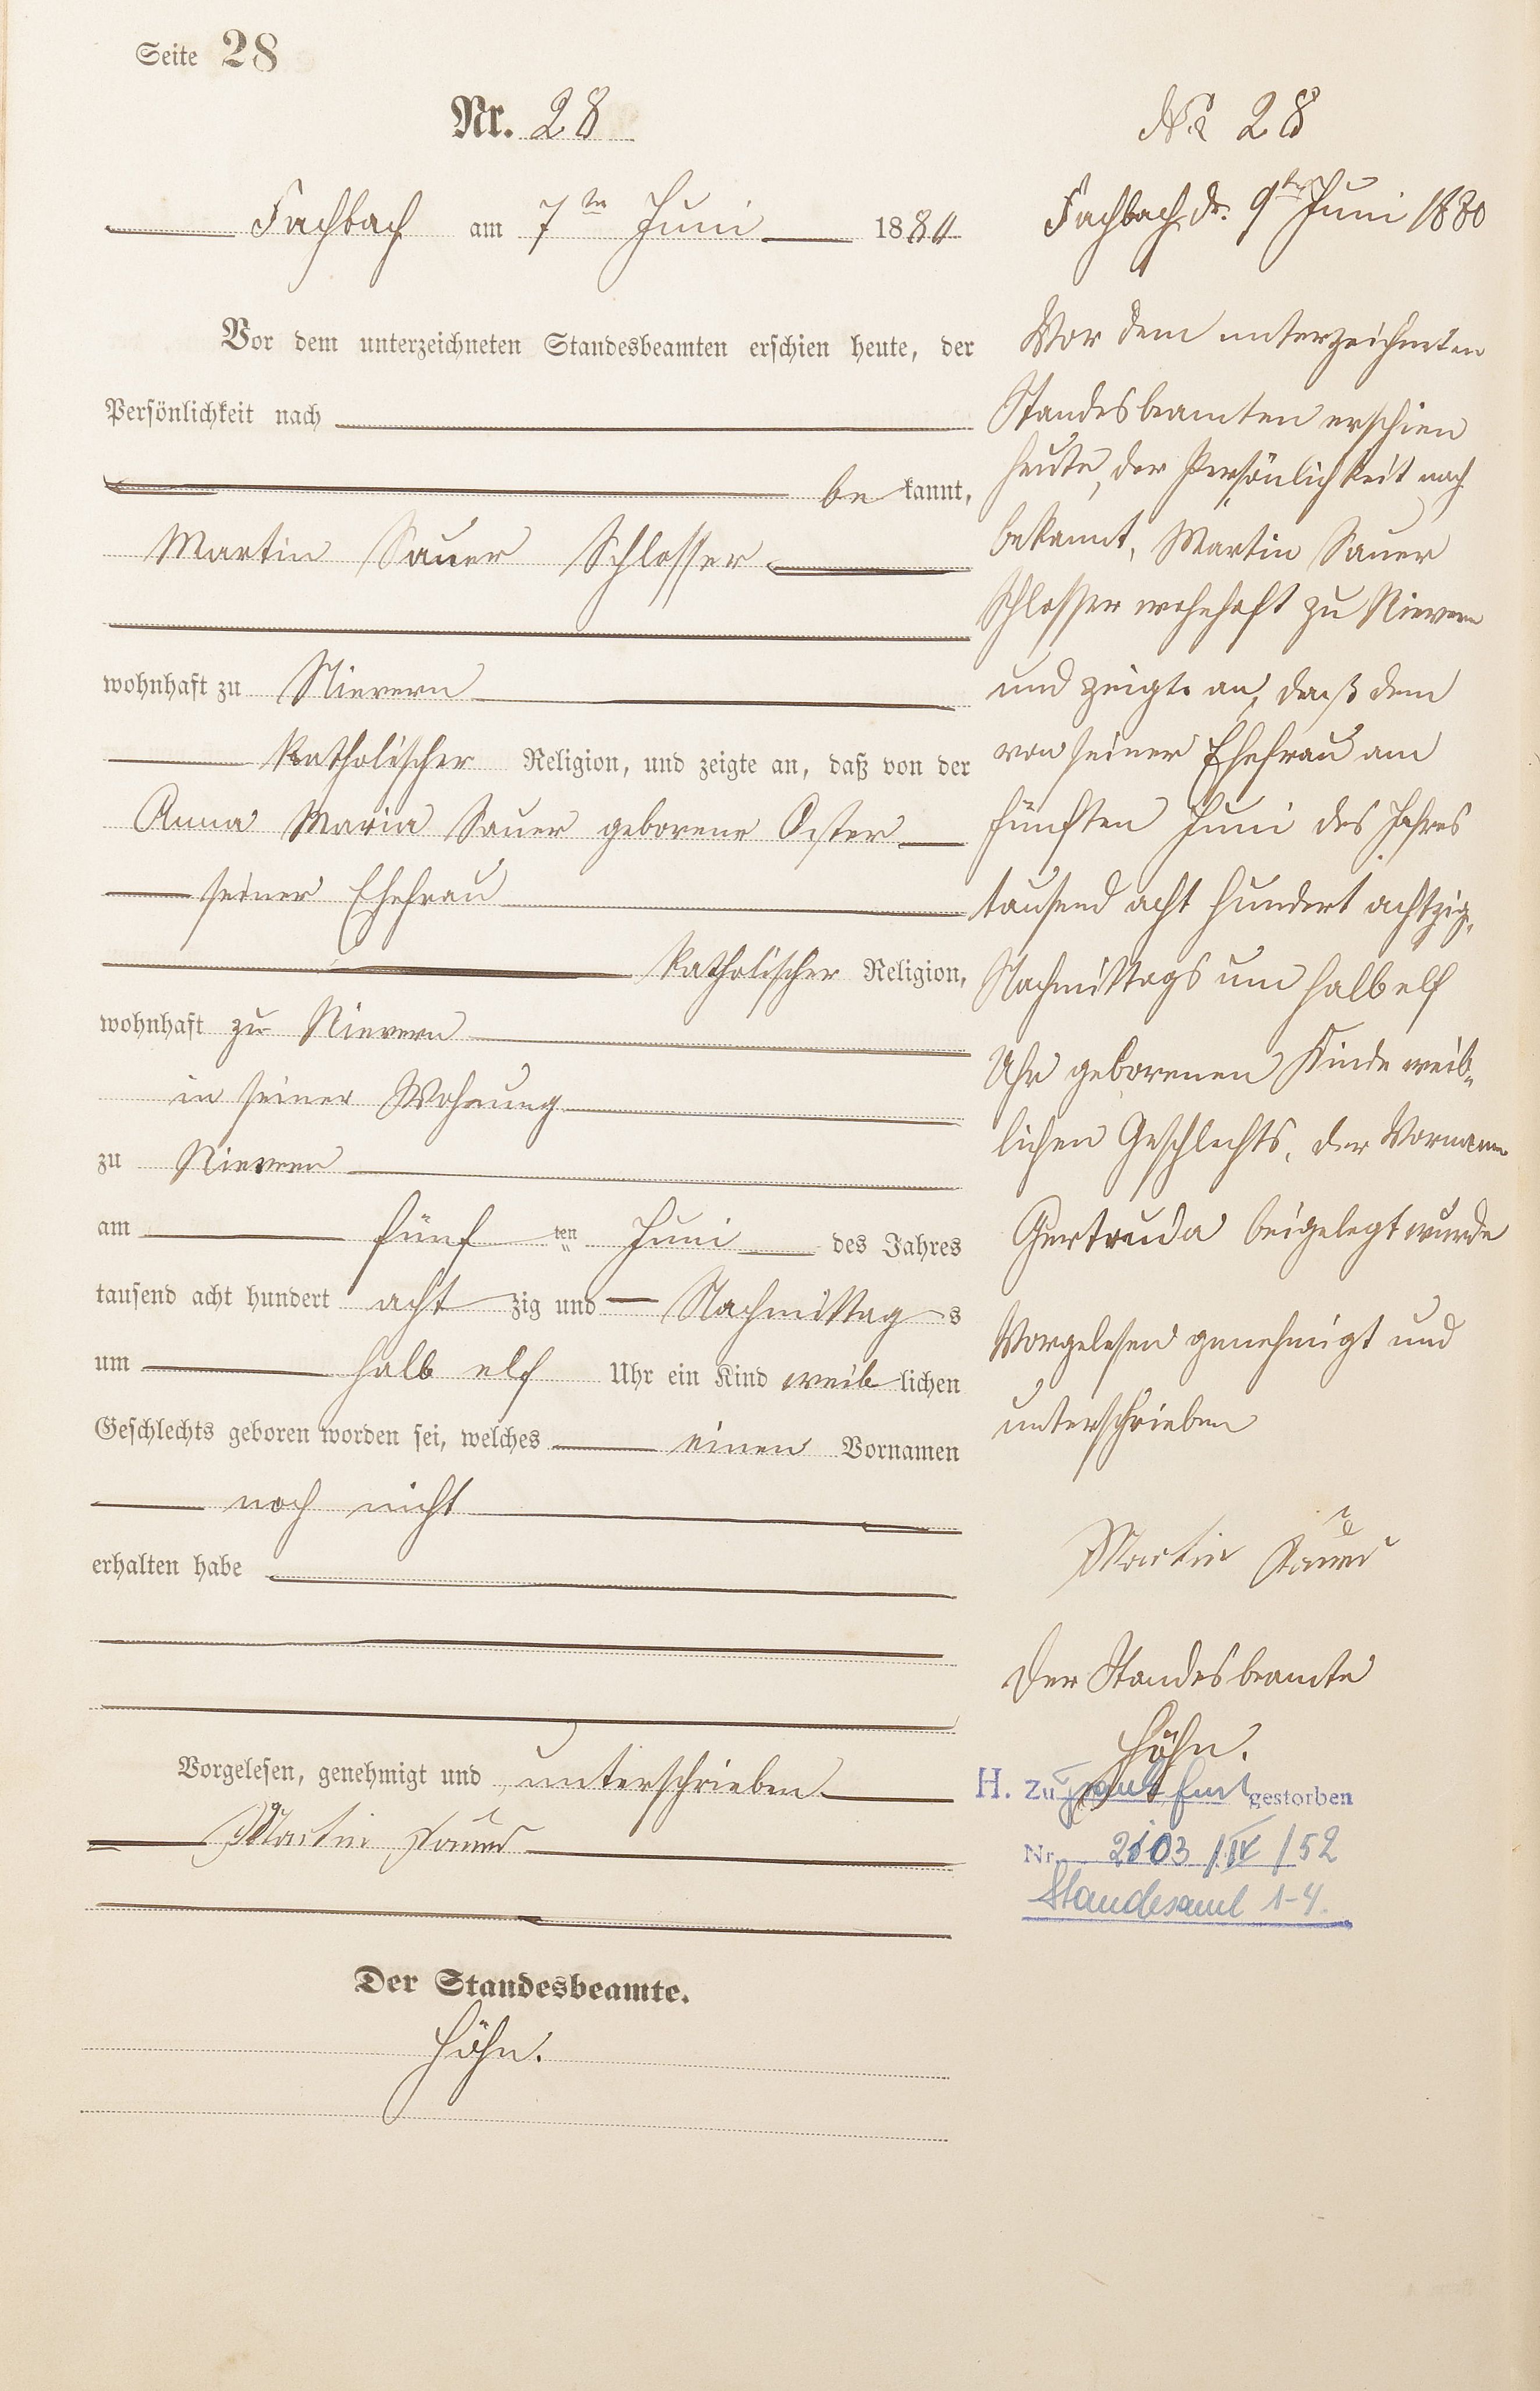 Seite 28
Nr. 28
Fachbach am 7ten Juni 1880
Vor dem unterzeichneten Standesbeamten erschien heute, der
Persönlichkeit nach
bekannt,
Martin Sauer Schlosser
wohnhaft zu Nievern
katholischer Religion, und zeigte an, daß von der
Anna Maria Sauer geborene Oster
seiner Ehefrau
katholischer Religion,
wohnhaft zu Nievern
in seiner Wohnung
zu Nievern
am fünf ten Juni des Jahres
tausend acht hundert acht zig und Nachmittags
um halb elf Uhr ein Kind weiblichen
Geschlechts geboren worden sei, welches einen Vornamen
noch nicht
erhalten habe
Vorgelesen, genehmigt und unterschrieben
Martin Sauer
Der Standesbeamte.
Höhn.
No 28
Fachbach, d. 9ten Juni 1880
Vor dem unterzeichneten
Standesbeamten erschien
heute, der Persönlichkeit nach
bekannt, Martin Sauer
Schlosser wohnhaft zu Nievern
und zeigte an, daß dem
von seiner Ehefrau am
fünften Juni des Jahres
tausend acht hundert achtzig,
Nachmittags um halb elf
Uhr geborenen Kinde weib-
lichen Geschlechts, der Vorname
Gertruda beigelegt wurde
Vorgelesen genehmigt und
unterschrieben
Martin Sauer
Der Standesbeamte
Höhn.
H. Zu gestorben
Nr. 2103 /IV /52
Standesamt 1-4.